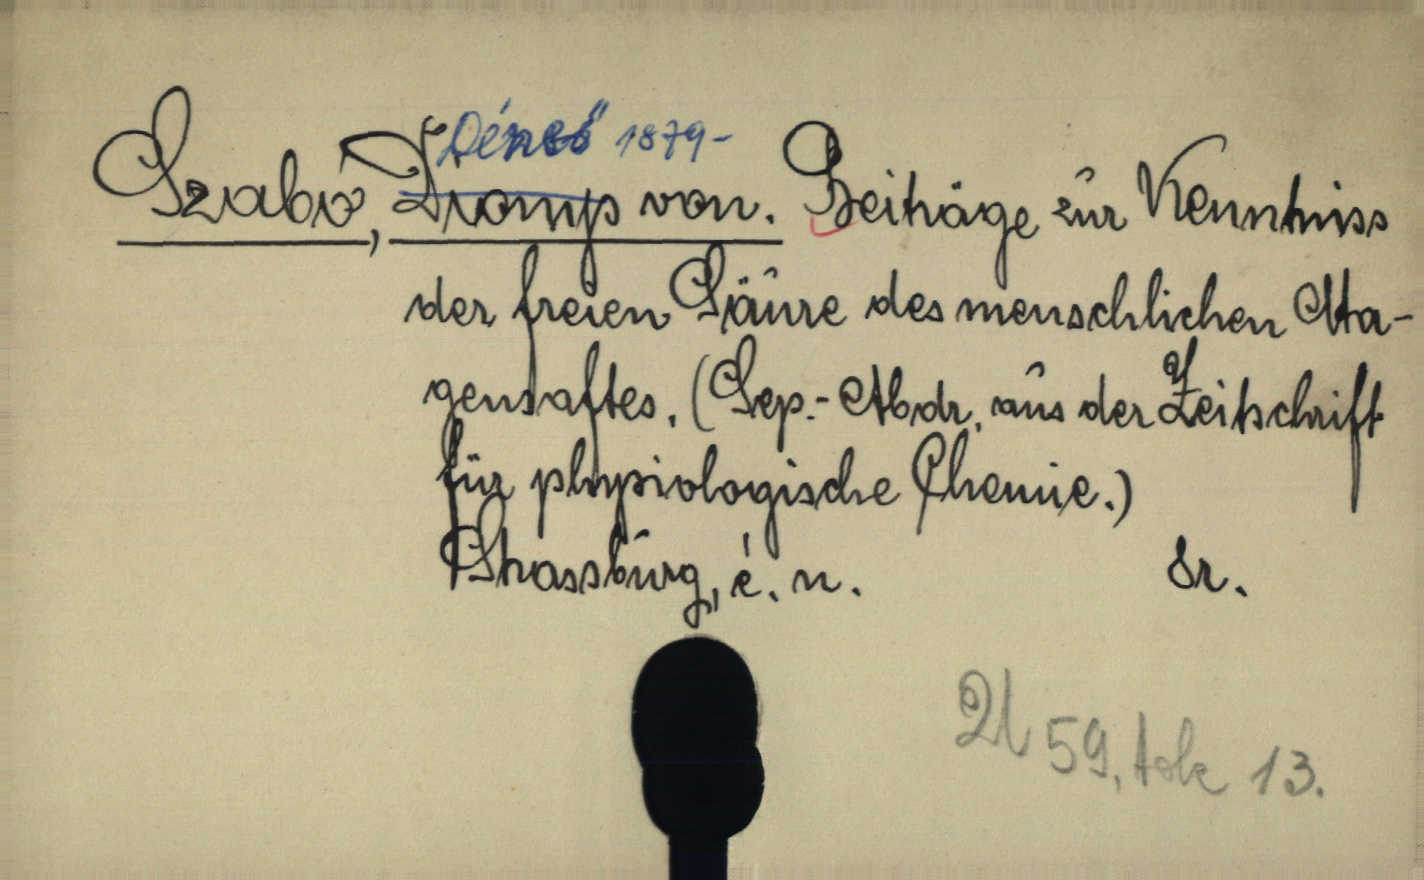 Dénes 1879-
Szabó, Dionys von. Beiträge zur Kenntniss
der freien Säure des menschlichen Ma-
gensaftes. (Sep.-Abdr. aus der Zeitschrift
für physiologische Chemie.)
Strassburg, é. n. 8r.
59, tok 13.